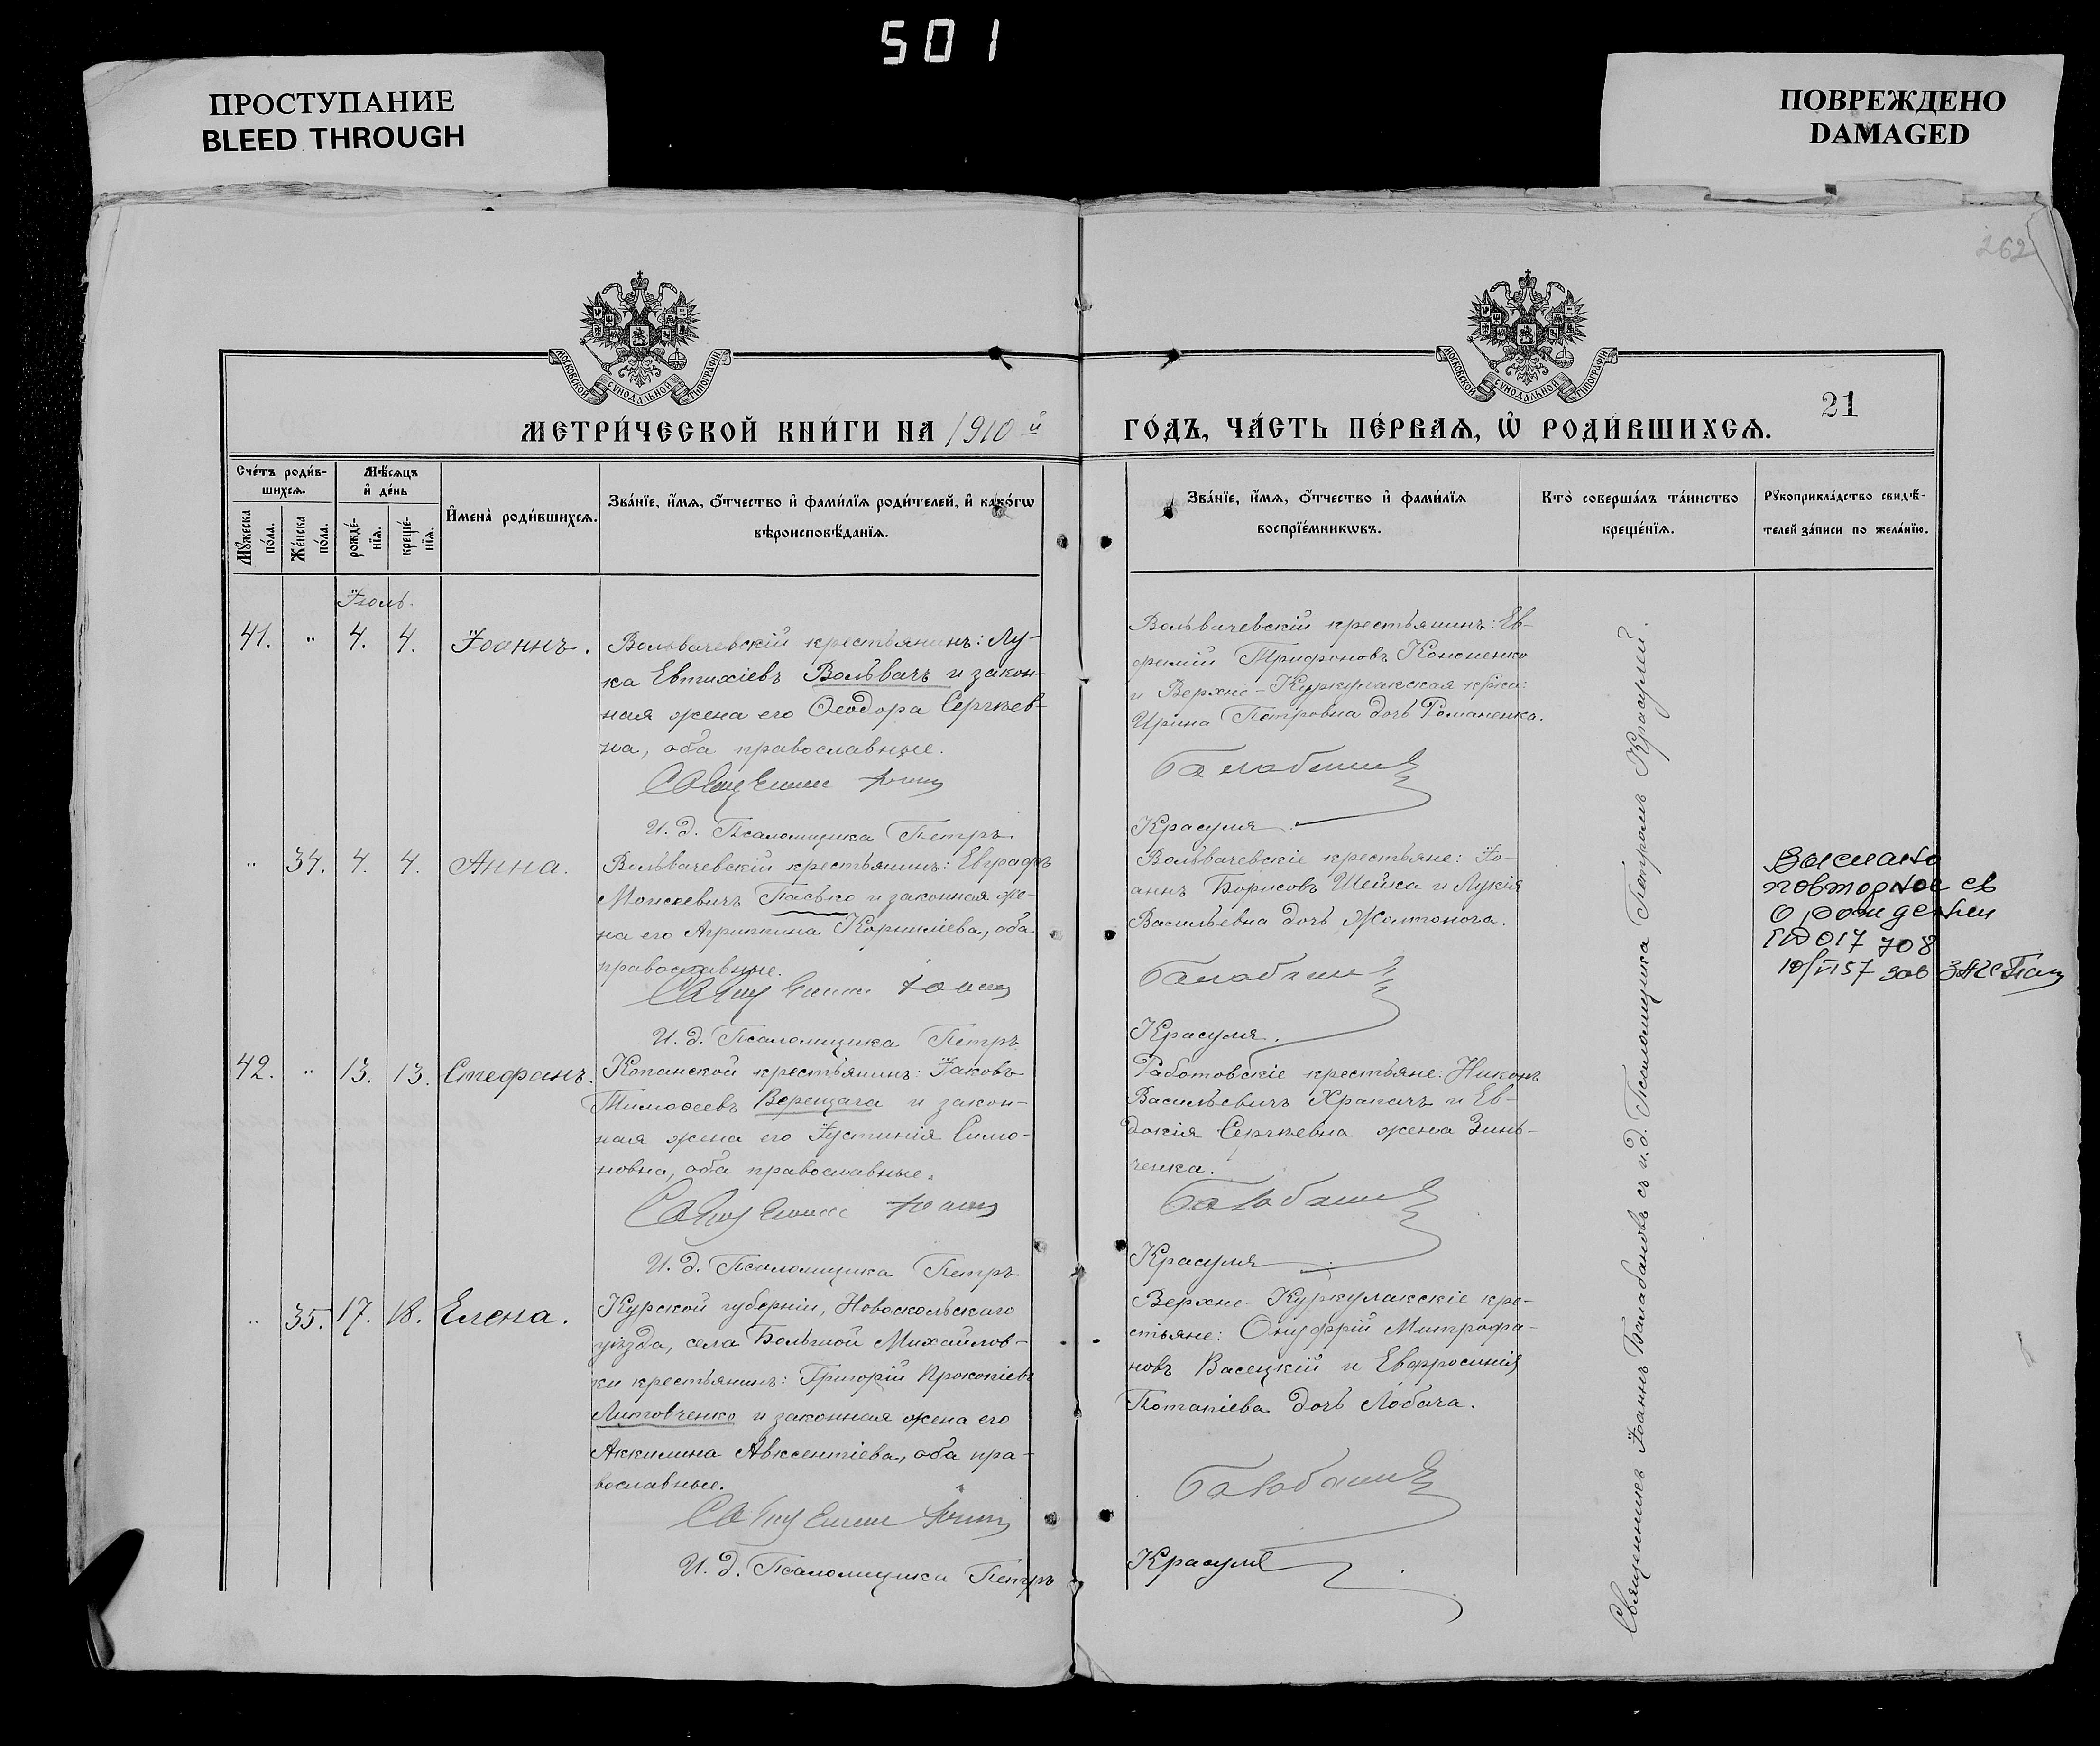 501
ПРОСТУПАНИЕ
BLEED THROUGH
ПОВРЕЖДЕНО
DAMAGED
262
МОСКОВСКОЙ СУНОДАЛЬНОЙ ТИПОГРАФІИ
МОСКОВСКОЙ СУНОДАЛЬНОЙ ТИПОГРАФІИ
21
МЕТРИ́ЧЕСКОЙ КНИ́ГИ НА 1910 й
ГО́ДЪ, ЧА́СТЬ ПЕ́РВАѦ, Ѡ҆ РОДИ́ВШИХСѦ.
Сче́тъ роди́в-
шихсѧ.
Мꙋ́жеска
по́ла.
Же́нска
по́ла.
Мѣ́сѧцъ
и҆ де́нь
рожде́-
нїѧ.
креще́-
нїѧ.
И҆мена̀ роди́вшихсѧ.
Зва́нїе, и҆́мѧ, ѻ҆́тчество и҆ фами́лїѧ роди́телей, и҆ како́гѡ
вѣроисповѣ́данїѧ.
Зва́нїе, и҆́мѧ, ѻ҆́тчество и҆ фами́лїѧ
воспрїе́мникѡвъ.
Кто̀ соверша́лъ та́инство
креще́нїѧ.
Рꙋкоприкла́дство свидѣ́-
телей за́писи по жела́нїю.
Іюль.
41. " 4. 4. Іоаннъ.
Вольвачевскій крестьянинъ: Лу-
ка Евтихіевъ Вольвачъ и закон-
ная жена его Ѳеодора Сергѣев-
на, оба православные.
Священникъ Іоаннъ
И. д. Псаломщика Петръ
Вольвачевскій крестьянинъ: Ев-
фимій Трифоновъ Кононенко
и Верхне-Куркулакская крес:
Ирина Петровна дочь Романенка.
Балабановъ
Красуля.
" 34. 4. 4. Анна.
Вольвачевскій крестьянинъ: Евграфъ
Моисеевичъ Пасько и законная же-
на его Агрипина Корнилієва, оба
православные.
Священникъ Іоаннъ
И. д. Псаломщика Петръ
Вольвачевскіе крестьяне: Іо-
аннъ Борисовъ Шейка и Лукія
Васильевна дочь Жолтонога.
Балабановъ
Красуля.
Выслано
повторное св
о рождении
017 708
10/VI 57 зав ЗАГС
42. " 13. 13. Стефанъ.
Копанской крестьянинъ: Іаковъ
Тимоѳеевъ Верещага и закон-
ная жена его Іустинія Симо-
новна, оба православные.
Священникъ Іоаннъ
И. д. Псаломщика Петръ
Работовскіе крестьяне: Никонъ
Васильевичъ Храпачъ и Ев-
докія Сергѣевна жена Зинь-
ченка.
Балабановъ
Красуля
" 35. 17. 18. Елена.
Курской губерніи, Новооскольскаго
уѣзда, села Большой Михайлов-
ки крестьянинъ: Григорій Прокопіевъ
Литовченко и законная жена его
Аккилина Авксентіева, оба пра-
вославные.
Священникъ Іоаннъ
И. д. Псаломщика Петръ
Верхне-Куркулакскіе кре-
стьяне: Онуфрій Митрофа-
новъ Васецкій и Евфросинія
Потапіева дочь Лобача.
Балабановъ
Красуля
Священникъ Іоаннъ Балабановъ съ и. д. Псаломщика Петромъ Красулей.